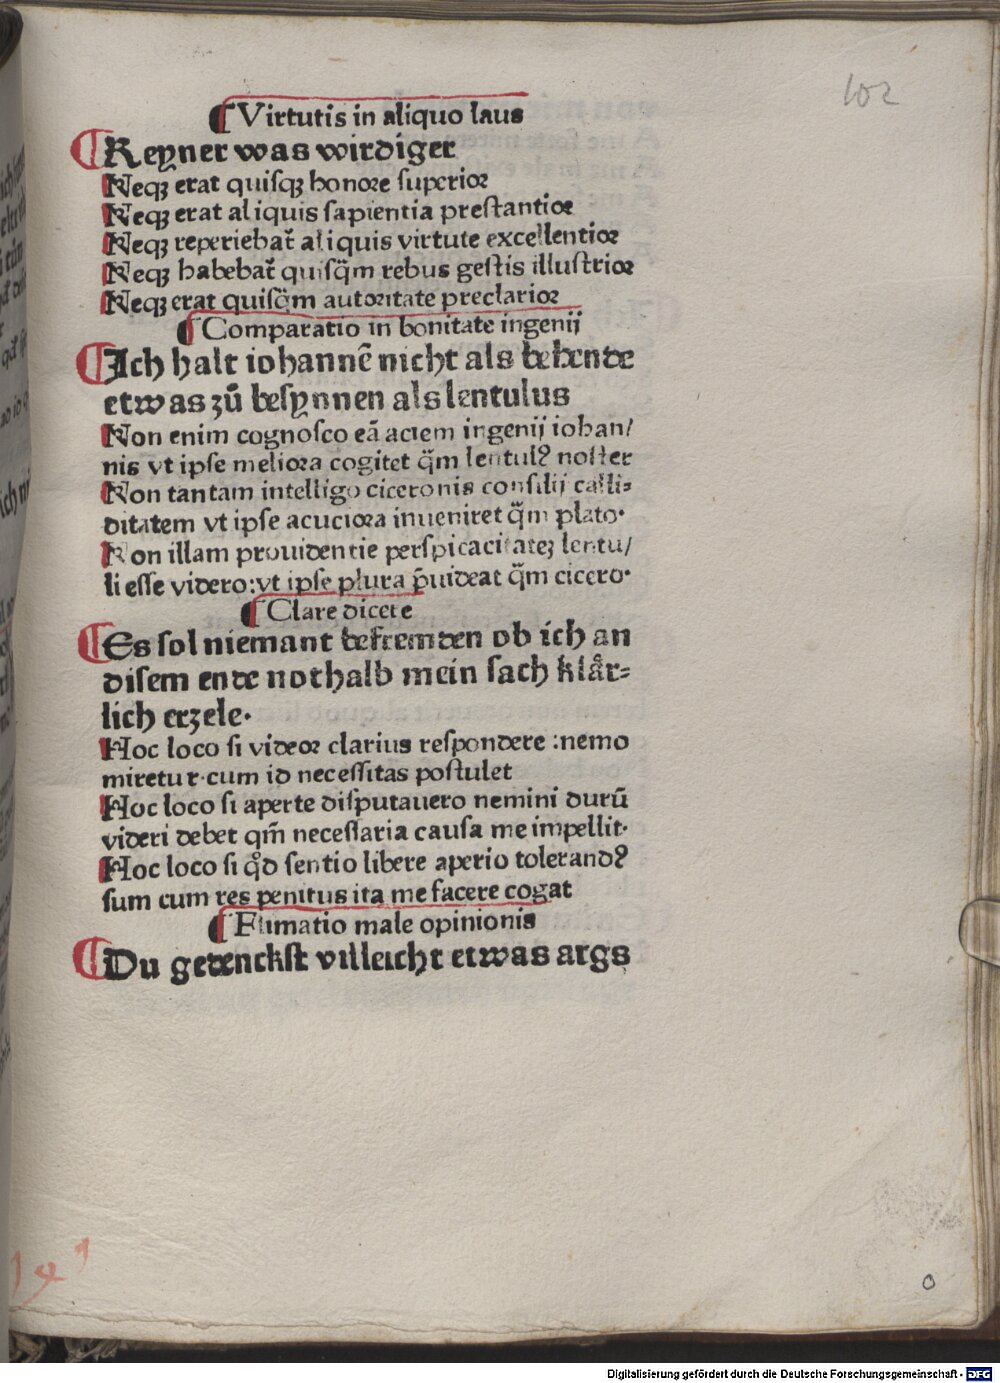 102
¶ Virtutis in aliquo laus
¶ Keyner was wirdiger
Neqꝫ erat quiſqꝫ honoꝛe ſuperioꝛ
Neqꝫ erat aliquis ſapientia preſtantioꝛ
Neqꝫ reperiebat᷑ aliquis virtute excellentioꝛ
Neqꝫ habebat᷑ quiſq̈m rebus geſtis illuſtrioꝛ
Neqꝫ erat quiſq̈m autoꝛitate preclarioꝛ
¶ Comparatio in bonitate ingenij
¶ Ich halt iohannē nicht als behende
etwas zů beſynnen als lentulus
Non enim cognoſco eā aciem ingenij iohan/
nis vt ipſe melioꝛa cogitet q̈m lentulꝰ noſter
Non tantam intelligo ciceronis conſilij calli⸗
ditatem vt ipſe acucioꝛa inueniret q̈m plato·
Non illam prouidentie perſpicacitateꝫ lentu/
li eſſe videro:vt ipſe plura p̄uideat q̈m cicero·
¶ Clare dicere
¶ Es ſol niemant befremden ob ich an
diſem ende nothalb mein ſach klår⸗
lich erzele·
Hoc loco ſi videoꝛ clarius reſpondere :nemo
miretur·cum id neceſſitas poſtulet
Hoc loco ſi aperte diſputauero nemini durū
videri debet qm̄ neceſſaria cauſa me impellit·
Hoc loco ſi qd̊ ſentio libere aperio tolerandꝰ
ſum cum res penitus ita me facere cogat
¶ Eſtimatio male opinionis
¶ Du gedenckſt villeicht etwas args
o
Digitalisierung gefördert durch die Deutsche Forschungsgemeinschaft - DFG